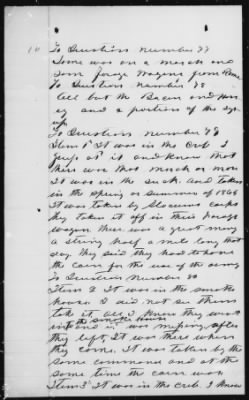 To Question Number 77
Some was on a march and
som forage Wagons from Rome
To Question number 78
all but the Bacon and
and a portion of the
To Question number 79
Item 1st It was in the Crib I
at it and know that
there was that much or more
It was in the shuck. And taken
in the Spring or Summer of 1864
It was taken by Slocums corps
they taken it off in their forage
wagons there was a great many
a string half a mile long that
day. They said they had to have
the corn for the use of the army
To Question Number 80
Item 2 It was in the smoke
house I did not see them
take it, all I know they went
into the smoke house
and it was missing after
they left, It was there when
they come. It was taken by the
same command and at the
same time the corn was
Item 3d It was in the Crib. I know